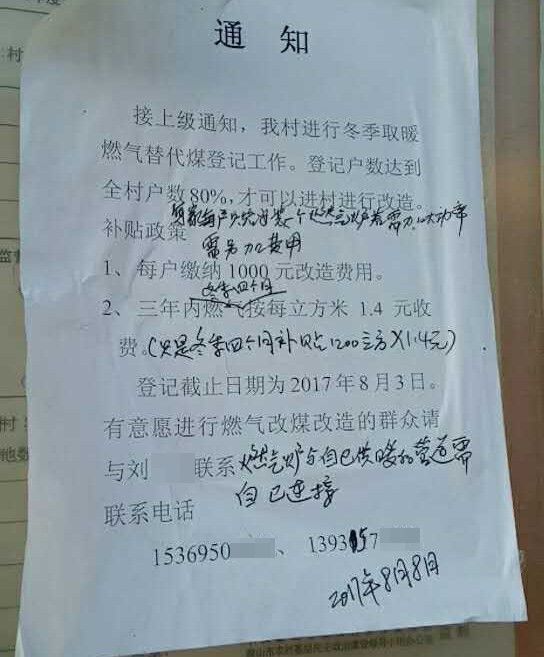 通 知
接上级通知，我村进行冬季取暖
燃气替代煤登记工作。登记户数达到
全村户数80%，才可以进村进行改造。
每户只免费安装一个燃气炉若需加大功率
补贴政策
需另加费用
1、每户缴纳1000元改造费用。
冬季四个月
2、三年内燃气按每立方米 1.4 元收
费。(只是冬季四个月补贴1200立方X1.4元)
登记截止日期为2017年8月3日。
有意愿进行燃气改煤改造的群众请
与刘 联系 燃气炉与自己供暖的管道需
自己连接
联系电话
1536950 、 1393157
2017年8月8日
村
监督
村
地数